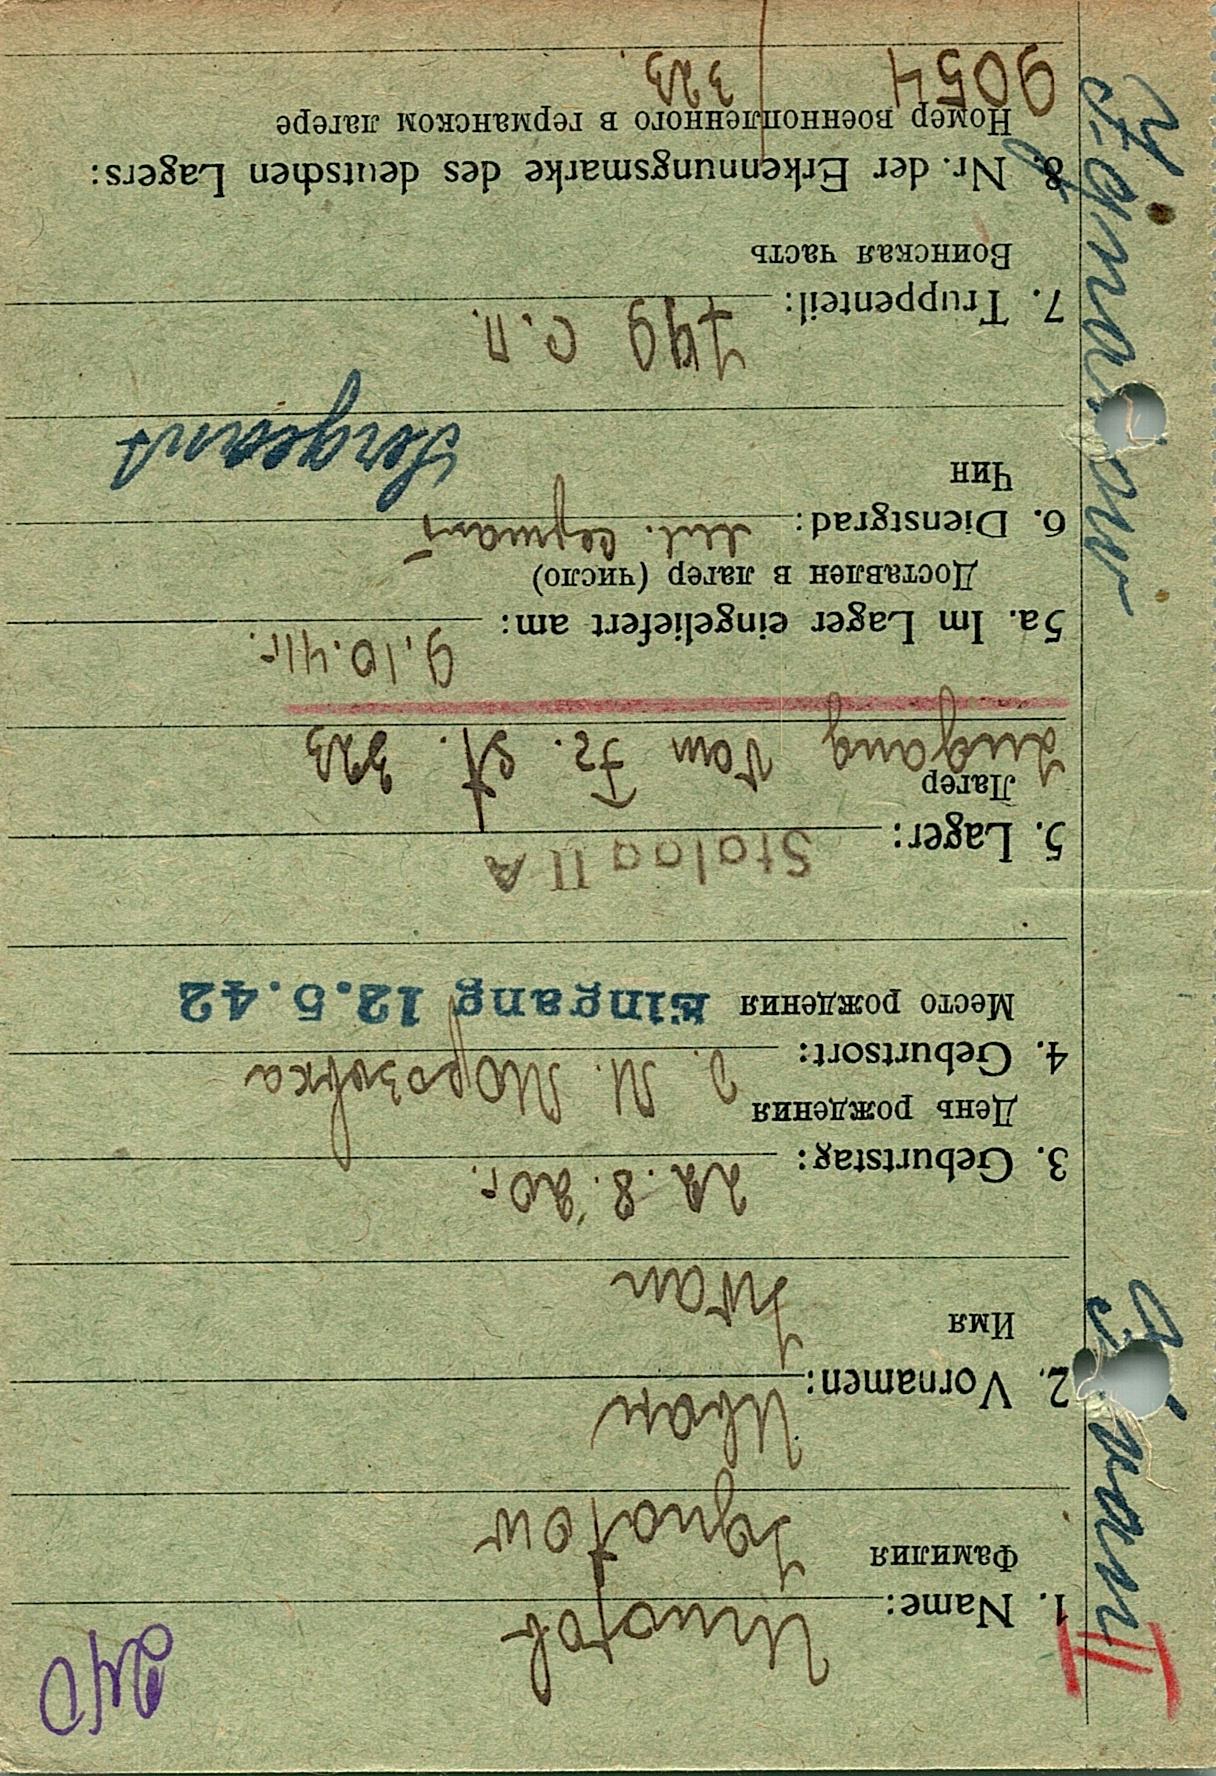 II
1. Name: Игнатов
Фамилия Ignatow
2. Vornamen: Иван
Имя Iwan
3. Geburtstag: 22.8.20 г.
День рождения
4. Geburtsort: М. Морозовка
Место рождения Eingang 12.5.42
5. Lager: Stalag II A
Лагер
Zugang vom Fr. St. 323
5a. Im Lager eingeliefert am: 9.10.41г.
Доставлен в лагер (число)
6. Dienstgrad: мл. сержант
Чин Sergeant
7. Truppenteil: с.п.
Воинская часть
8. Nr. der Erkennungsmarke des deutschen Lagers:
Номер военнопленного в германском лагере
9054 323
Iwan Ignatow